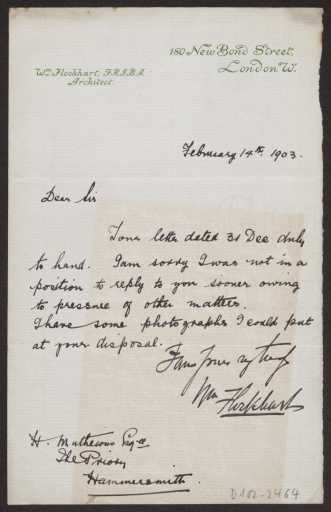 180 New Bond Street,
London W.
Wm Flockhart, F.R.I.B.A.
Architect.
February 14th 1903.
Dear Sir
Your letter dated 31 Dec duly
to hand. I am sorry I was not in a
position to reply to you sooner owing
to pressure of other matters.
I have some photographs I could put
at your disposal.
Yours
Wm Flockhart
H. Mathews Esqre
The Priory
Hammersmith
D102-2464